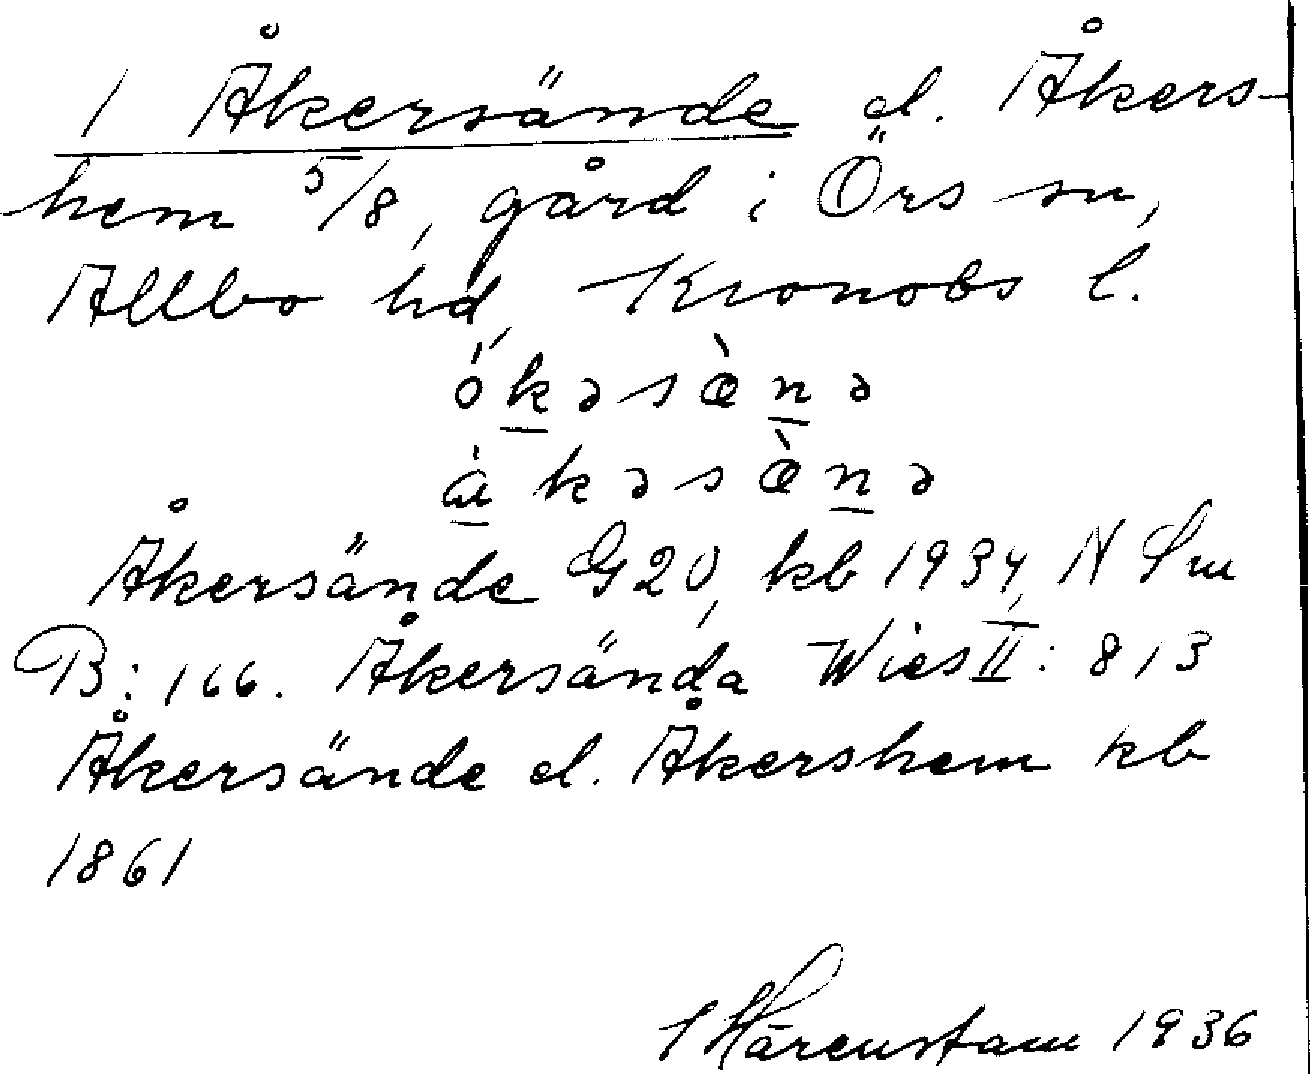 1 Åkersände el. Åkers-
hem 5/8, gård i Örs sn,
Allbo hd, Kronobs l.
ókəsæ̀nə
àkəsæ̀nə
Åkersände G20, kb 1934, N Sm
B: 166. Åkersända Wies II: 813
Åkersände el. Åkershem kb
1861
Härenstam 1936